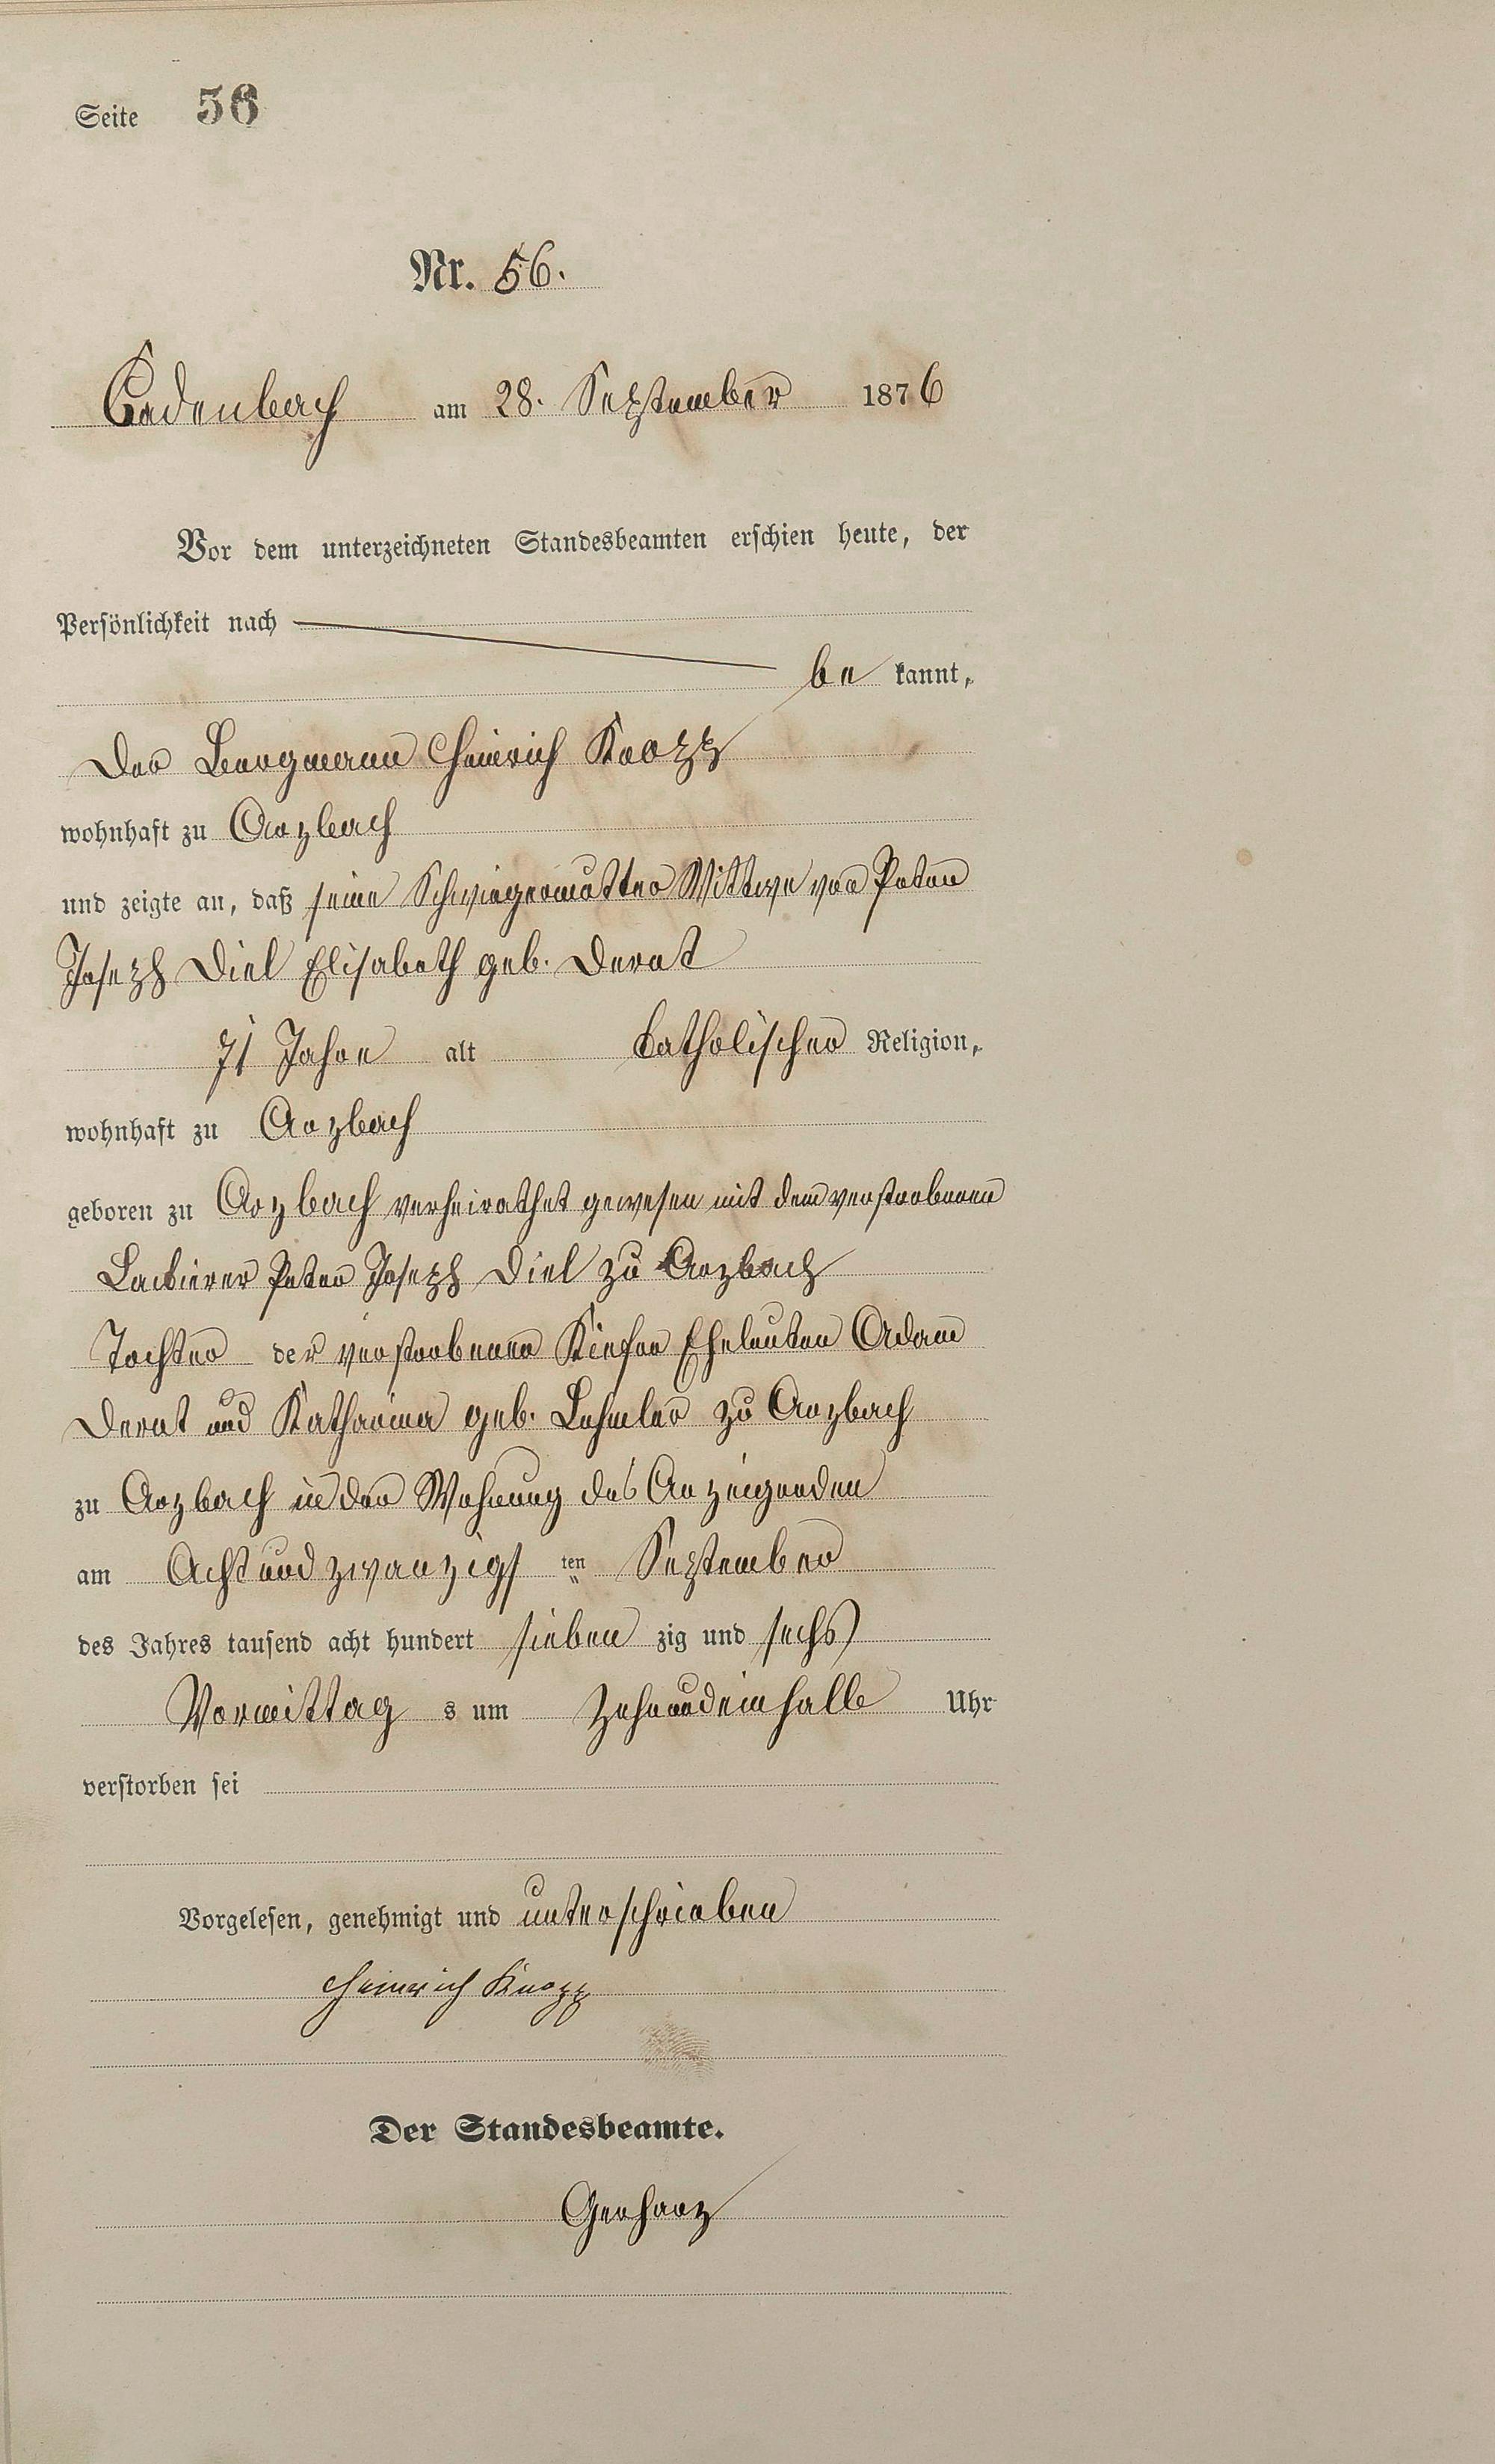 Seite 56
Nr. 56.
Cadenbach am 28. September 1876
Vor dem unterzeichneten Standesbeamten erschien heute, der
Persönlichkeit nach
be kannt,
Der Bergmann Heinrich Knopp
wohnhaft zu Arzbach
und zeigte an, daß seine Schwiegermutter Wittwe von Peter
Joseph Diel Elisabeth geb. Dernt
71 Jahre alt katholischer Religion,
wohnhaft zu Arzbach
geboren zu Arzbach verheirathet gewesen mit dem verstorbenen
Peter Joseph Diel zu Arzbach
Tochter der verstorbenen Eheleuten Adam
Dernt und Katharina geb. Lehmler zu Arzbach
zu Arzbach in der Wohnung des Anzeigenden
am Acht und zwanzigs ten September
des Jahres tausend acht hundert sieben zig und sechs
Vormittag s um Zehnundeinhalb Uhr
verstorben sei
Vorgelesen, genehmigt und unterschrieben
Heinrich Knopp
Der Standesbeamte.
Gerharz